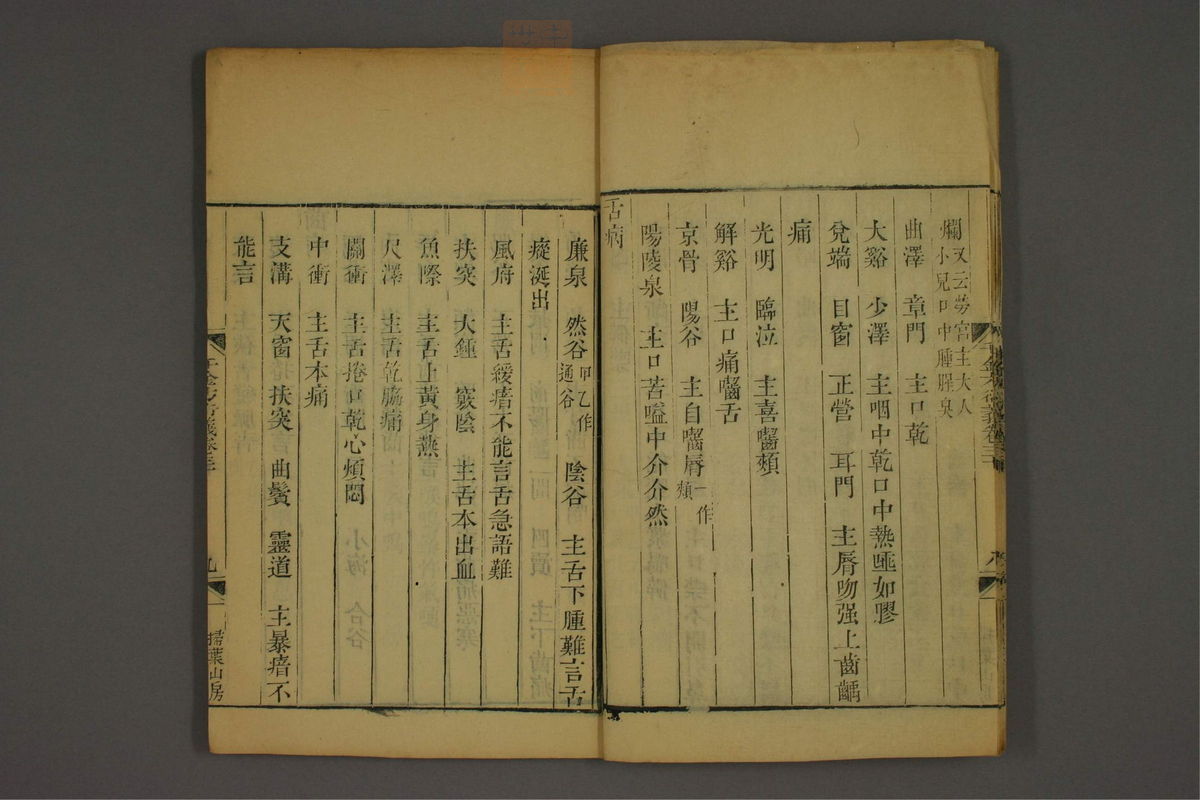 爛又云勞宮主大人
小兒口中腫腥臭
曲澤 章門 主口乾
大谿 少澤 主咽中乾口中熱唾如膠
兌端 目窗 正營 耳門 主脣吻强上齒齲
痛
光明 臨泣 主喜齧頰
解谿 主口痛齧舌
京骨 陽谷 主自齧脣一作頰
陽陵泉 主口苦嗌中介介然
舌病
廉泉 然谷甲乙作通谷 陰谷 主舌下腫難言舌
瘲涎出
風府 主舌緩瘖不能言舌急語難
扶突 大鍾 竅陰 主舌本出血
魚際 主舌上黃身熱
尺澤 主舌乾脇痛
關衝 主舌捲口乾心煩悶
中衝 主舌本痛
支溝 天窗 扶突 曲鬢 靈道 主暴瘖不
能言
九
掃葉山房